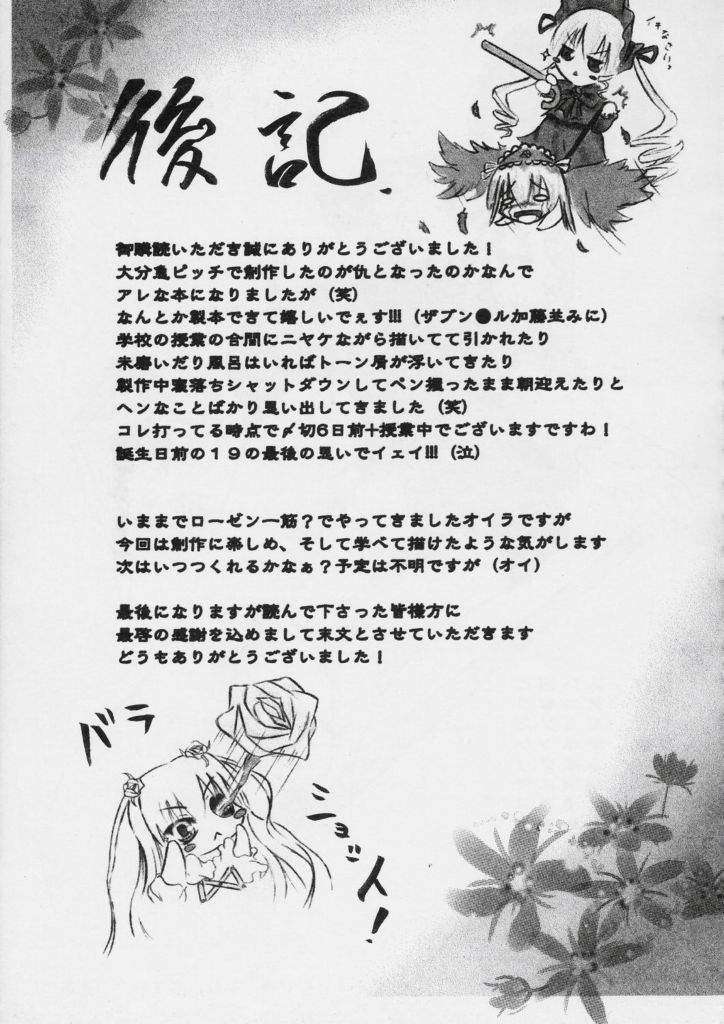 後記
御購読いただき誠にありがとうございました！
大分急ピッチで創作したのが仇となったのかなんで
アレな本になりましたが（笑）
なんとか製本できて嬉しいでぇす!!!（ザブン●ル加藤並みに）
学校の授業の合間にニヤケながら描いてて引かれたり
未磨いだり風呂はいればトーン屑が浮いてきたり
製作中寝落ちシャットダウンしてペン握ったまま朝迎えたりと
ヘンなことばかり思い出してきました（笑）
コレ打ってる時点で〆切6日前+授業中でございますですわ！
誕生日前の１９の最後の思いでイェイ!!!（泣）
いままでローゼン一筋？でやってきましたオイラですが
今回は創作に楽しめ、そして学べて描けたような気がします
次はいつつくれるかなぁ？予定は不明ですが（オイ）
最後になりますが読んで下さった皆様方に
最啓の感謝を込めまして末文とさせていただきます
どうもありがとうございました！
バラ